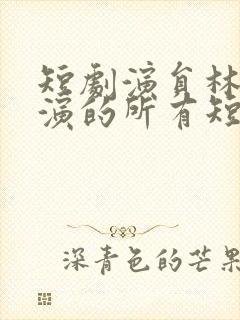 短劇演員林
演的所有短
深青色的芒果